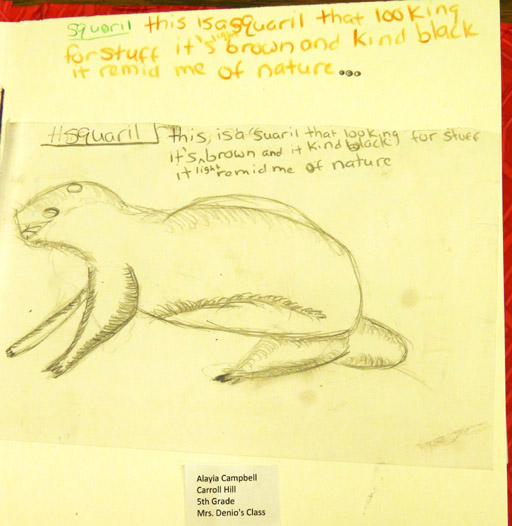 squaril this is a squaril that looking
for stuff it's light brown and kind black
it remid me of nature...
#squaril this, is a suaril that looking for stuff
it's light brown and it kind black
it remid me of nature
Alayia Campbell
Carroll Hill
5th Grade
Mrs. Denio's Class